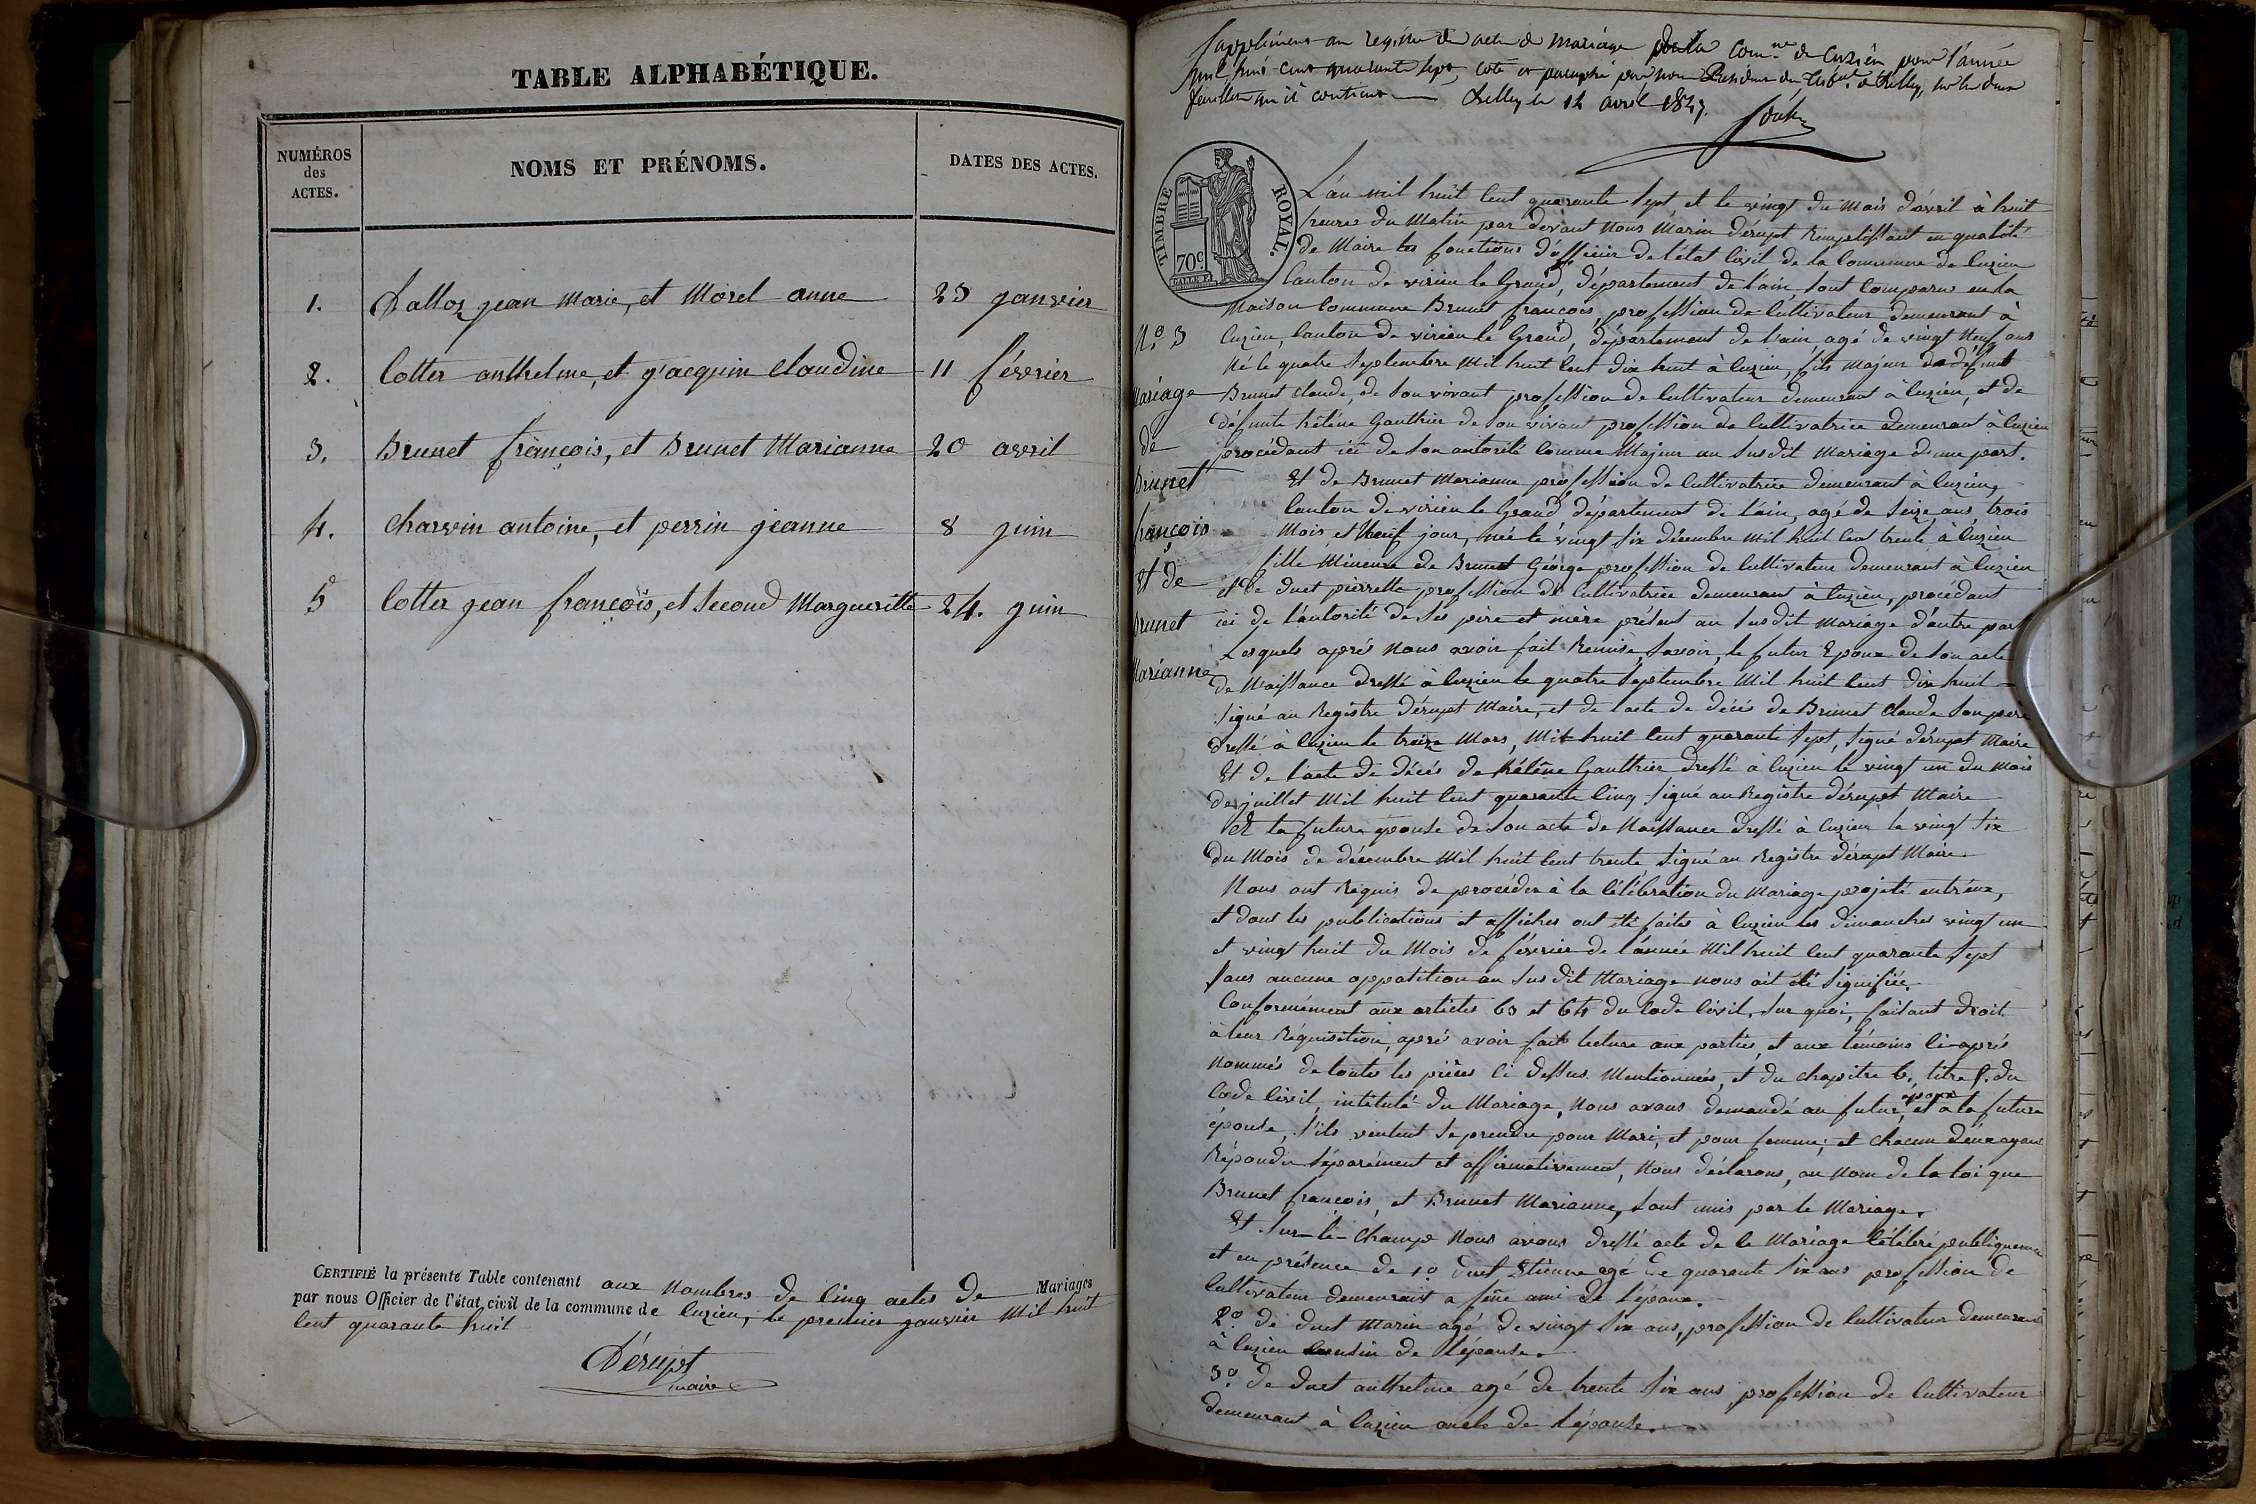 TABLE ALPHABÉTIQUE.
NUMÉROS
des
ACTES.
NOMS ET PRÉNOMS.
DATES DES ACTES.
1. Dalloz jean marie, et Morel anne 23 janvier
2. Cotter anthelme, et jacquin claudine 11 février
3. Brunet françois, et Brunet Marianne 20 avril
4. charvin antoine, et perrin jeanne 8 juin
5 Cotter jean françois, et Second Margueritte 24. juin
CERTIFIÉ la présente Table contenant aux Nombres de Cinq actes de Mariages
par nous Officier de l'état civil de la commune de Cuzieu, le premier janvier Mil huit
Cent quarante huit
Dérupt
maire
Supplément au registre des actes de mariage de la Com.ne de Cuzieu pour l'année
mil huit cent quarante sept, coté et paraphé par nous Président du Trib.al de Belley, sur les deux
feuillets qu'il contient Belley le 14 avril 1847.
TIMBRE ROYAL.
70c.
L'an mil huit Cent quarante Sept et le vingt du Mois d'avril à huit
heures du Matin par devant Nous Marin dérupt Remplissant en qualité
de Maire les fonctions d'officier de l'état Civil de la Commune de Cuzieu
Canton de virieu le Grand, département de l'ain Sont Comparus en la
Maison Commune Brunet françois, profession de Cultivateur demeurant à
N.o 3
Cuzieu, Canton de virieu le Grand, département de l'ain, agé de vingt Neuf ans
Né le quatre Septembre Mil huit Cent dix huit à Cuzieu, fils Majeur de défunt
Mariage
Brunet claude, de Son vivant profession de Cultivateur demeurant à Cuzieu, et de
défunte héléne Gauthier de Son vivant profession de Cultivatrice demeurant à Cuzieu
de
procédant ici de Son autorité Comme Majeur au Susdit Mariage d'une part.
Brunet
Et de Brunet Marianne profession de Cultivatrice demeurant à Cuzieu,
Canton de virieu le Grand département de l'ain, agé de Seize ans, trois
françois
Mois et Neuf jour, née le vingt Six décembre Mil huit Cent trente à Cuzieu
fille Mineure de Brunet George profession de Cultivateur demeurant à Cuzieu
Et de
et de Duet pierrette profession de Cultivatrice demeurant à Cuzieu, procédant
Brunet
ici de l'autorité de Ses père et mère présent au Susdit Mariage d'autre part
Lesquels aprés Nous avoir fait Remise, Savoir, le futur Epoux de Son acte
Marianne
de Naissance dressé à Cuzieu le quatre Septembre Mil huit Cent dix huit
Signé au Registre dérupt Maire, et de l'acte de décés de Brunet Claude Son pere
dressé à Cuzieu le treize Mars, Mil huit Cent quarante Sept, Signé dérupt Maire
Et de l'acte de décés de héléne Gautthier dressé a Cuzieu le vingt un du Mois
de juillet Mil huit Cent quarante Cinq Signé au Registre dérupt Maire
Et la future épouse de Son acte de Naissance dressé à Cuzieu le vingt Six
du Mois de décembre Mil huit Cent trente Signé au Registre dérupt Maire
Nous ont Requis de procéder à la Célébration du Mariage projeté entr'eux,
et dont les publications et affiches ont été faites à Cuzieu les dimanches vingt un
et vingt huit du Mois de février de l'année Mil huit Cent quarante Sept
Sans aucune oppotition au Sus dit Mariage nous ait été Signifiée.
Conformément aux articles 63 et 64 du Code Civil, Sur quoi, faisant droit
à leur Réquisition, aprés avoir fait lecture aux parties, et aux témoins Ci-aprés
Nommés de toutes les pièces Ci dessus Mentionnées, et du chapitre 6, titre 5. du
Code Civil, intitulé du Mariage, Nous avons demandé au futur époux, et à la future
épouse, S'ils veulent Se prendre pour Mari, et pour femme; et chacun d'eux ayant
Répondu Séparément et affirmativement, Nous déclarons, au Nom de la loi que
Brunet françois, et Brunet Marianne, Sont unis par le Mariage.
Et Sur-le-champ Nous avons dressé acte de Ce Mariage Célébré publiquement
et en présence de 1.o Duet Etienne agé de quarante Six ans profession de
Cultivateur demeurant a ami de l'époux.
2.o de Duet Marin agé de vingt Six ans, profession de Cultivateur demeurant
à Cuzieu Cousin de l'épouse.
3.o de Duet anthelme agé de trente Six ans, profession de Cultivateur
demeurant à Cuzieu oncle de l'épouse.